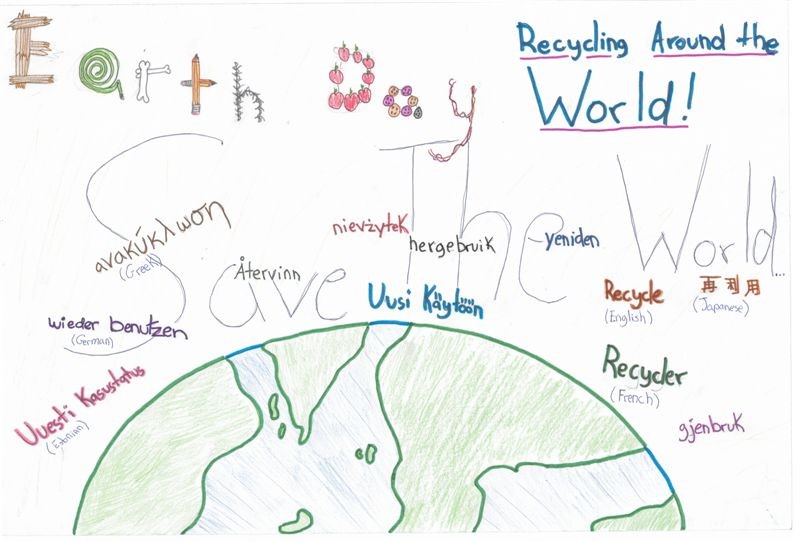 Earth Day
Recycling Around the
World!
Save The World...
ανακύκλωση
(Greek)
nievżytek
hergebruik
yeniden
Återvinn
Uusi Käytöön
Recycle
(English)
再利用
(Japanese)
wieder benutzen
(German)
Recycler
(French)
Uuesti Kasustatus
(Estonian)
gjenbruk